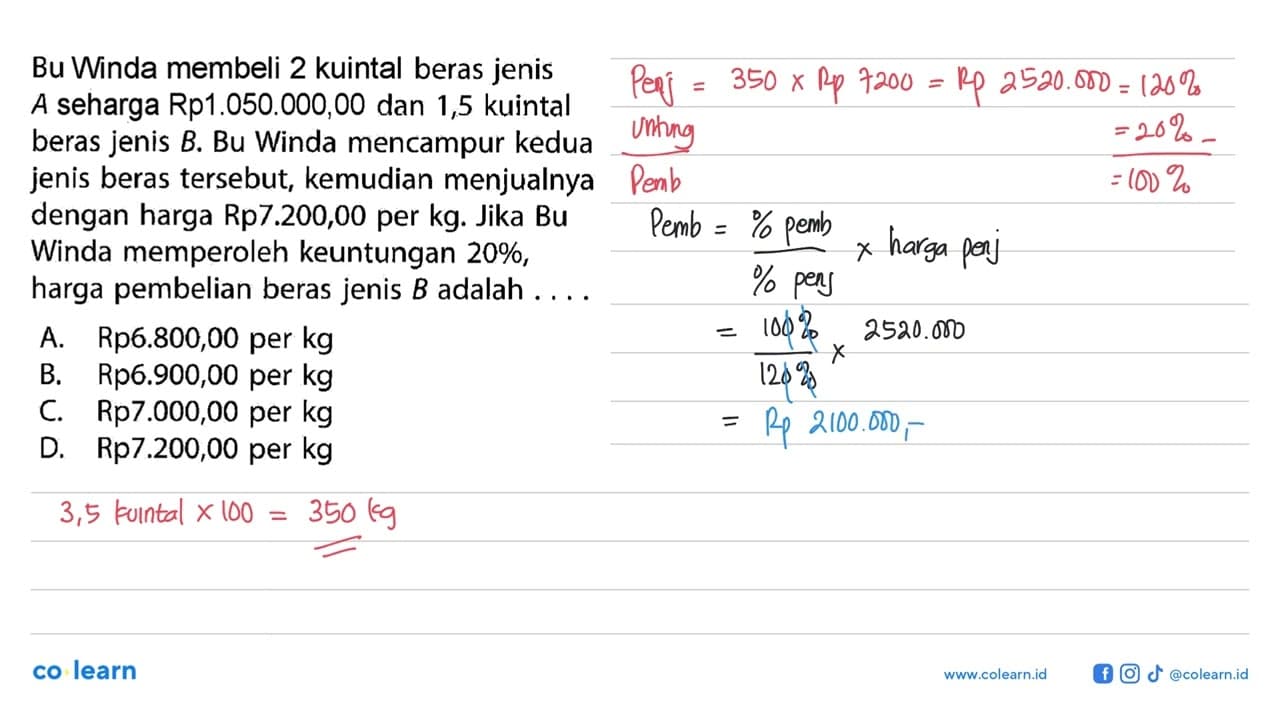 Bu Winda membeli 2 kuintal beras jenis
A seharga Rp1.050.000,00 dan 1,5 kuintal
beras jenis B. Bu Winda mencampur kedua
jenis beras tersebut, kemudian menjualnya
dengan harga Rp7.200,00 per kg. Jika Bu
Winda memperoleh keuntungan 20%,
harga pembelian beras jenis B adalah . . . .
A. Rp6.800,00 per kg
B. Rp6.900,00 per kg
C. Rp7.000,00 per kg
D. Rp7.200,00 per kg
3,5 kuintal x 100 = 350 kg
Penj = 350 x Rp 7200 = Rp 2520.000 = 120%
Untung = 20% -
Pemb = 100%
Pemb = % pemb / % penj x harga penj
= 100% / 120% x 2520.000
= Rp 2100.000,-
co learn
www.colearn.id @colearn.id